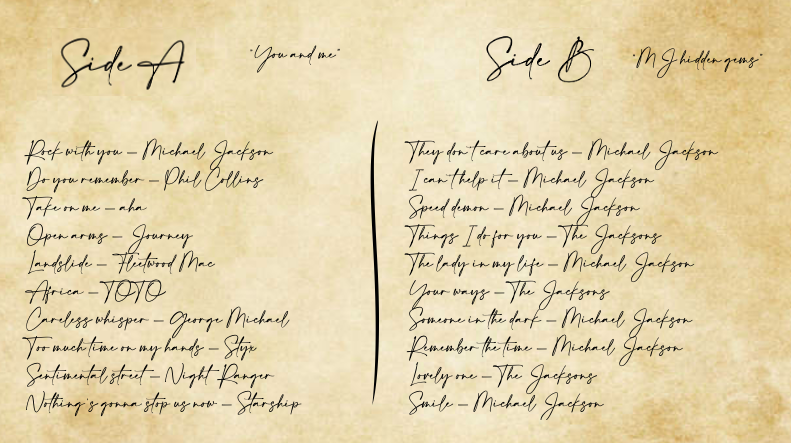 Side A
"You and me"
Rock with you – Michael Jackson
Do you remember – Phil Collins
Take on me – aha
Open arms – Journey
Landslide – Fleetwood Mac
Africa – TOTO
Careless whisper – George Michael
Too much time on my hands – Styx
Sentimental street – Night Ranger
Nothing's gonna stop us now – Starship
Side B
"MJ hidden gems"
They don't care about us – Michael Jackson
I can't help it – Michael Jackson
Speed demon – Michael Jackson
Things I do for you – The Jacksons
The lady in my life – Michael Jackson
Your ways – The Jacksons
Someone in the dark – Michael Jackson
Remember the time – Michael Jackson
Lovely one – The Jacksons
Smile – Michael Jackson